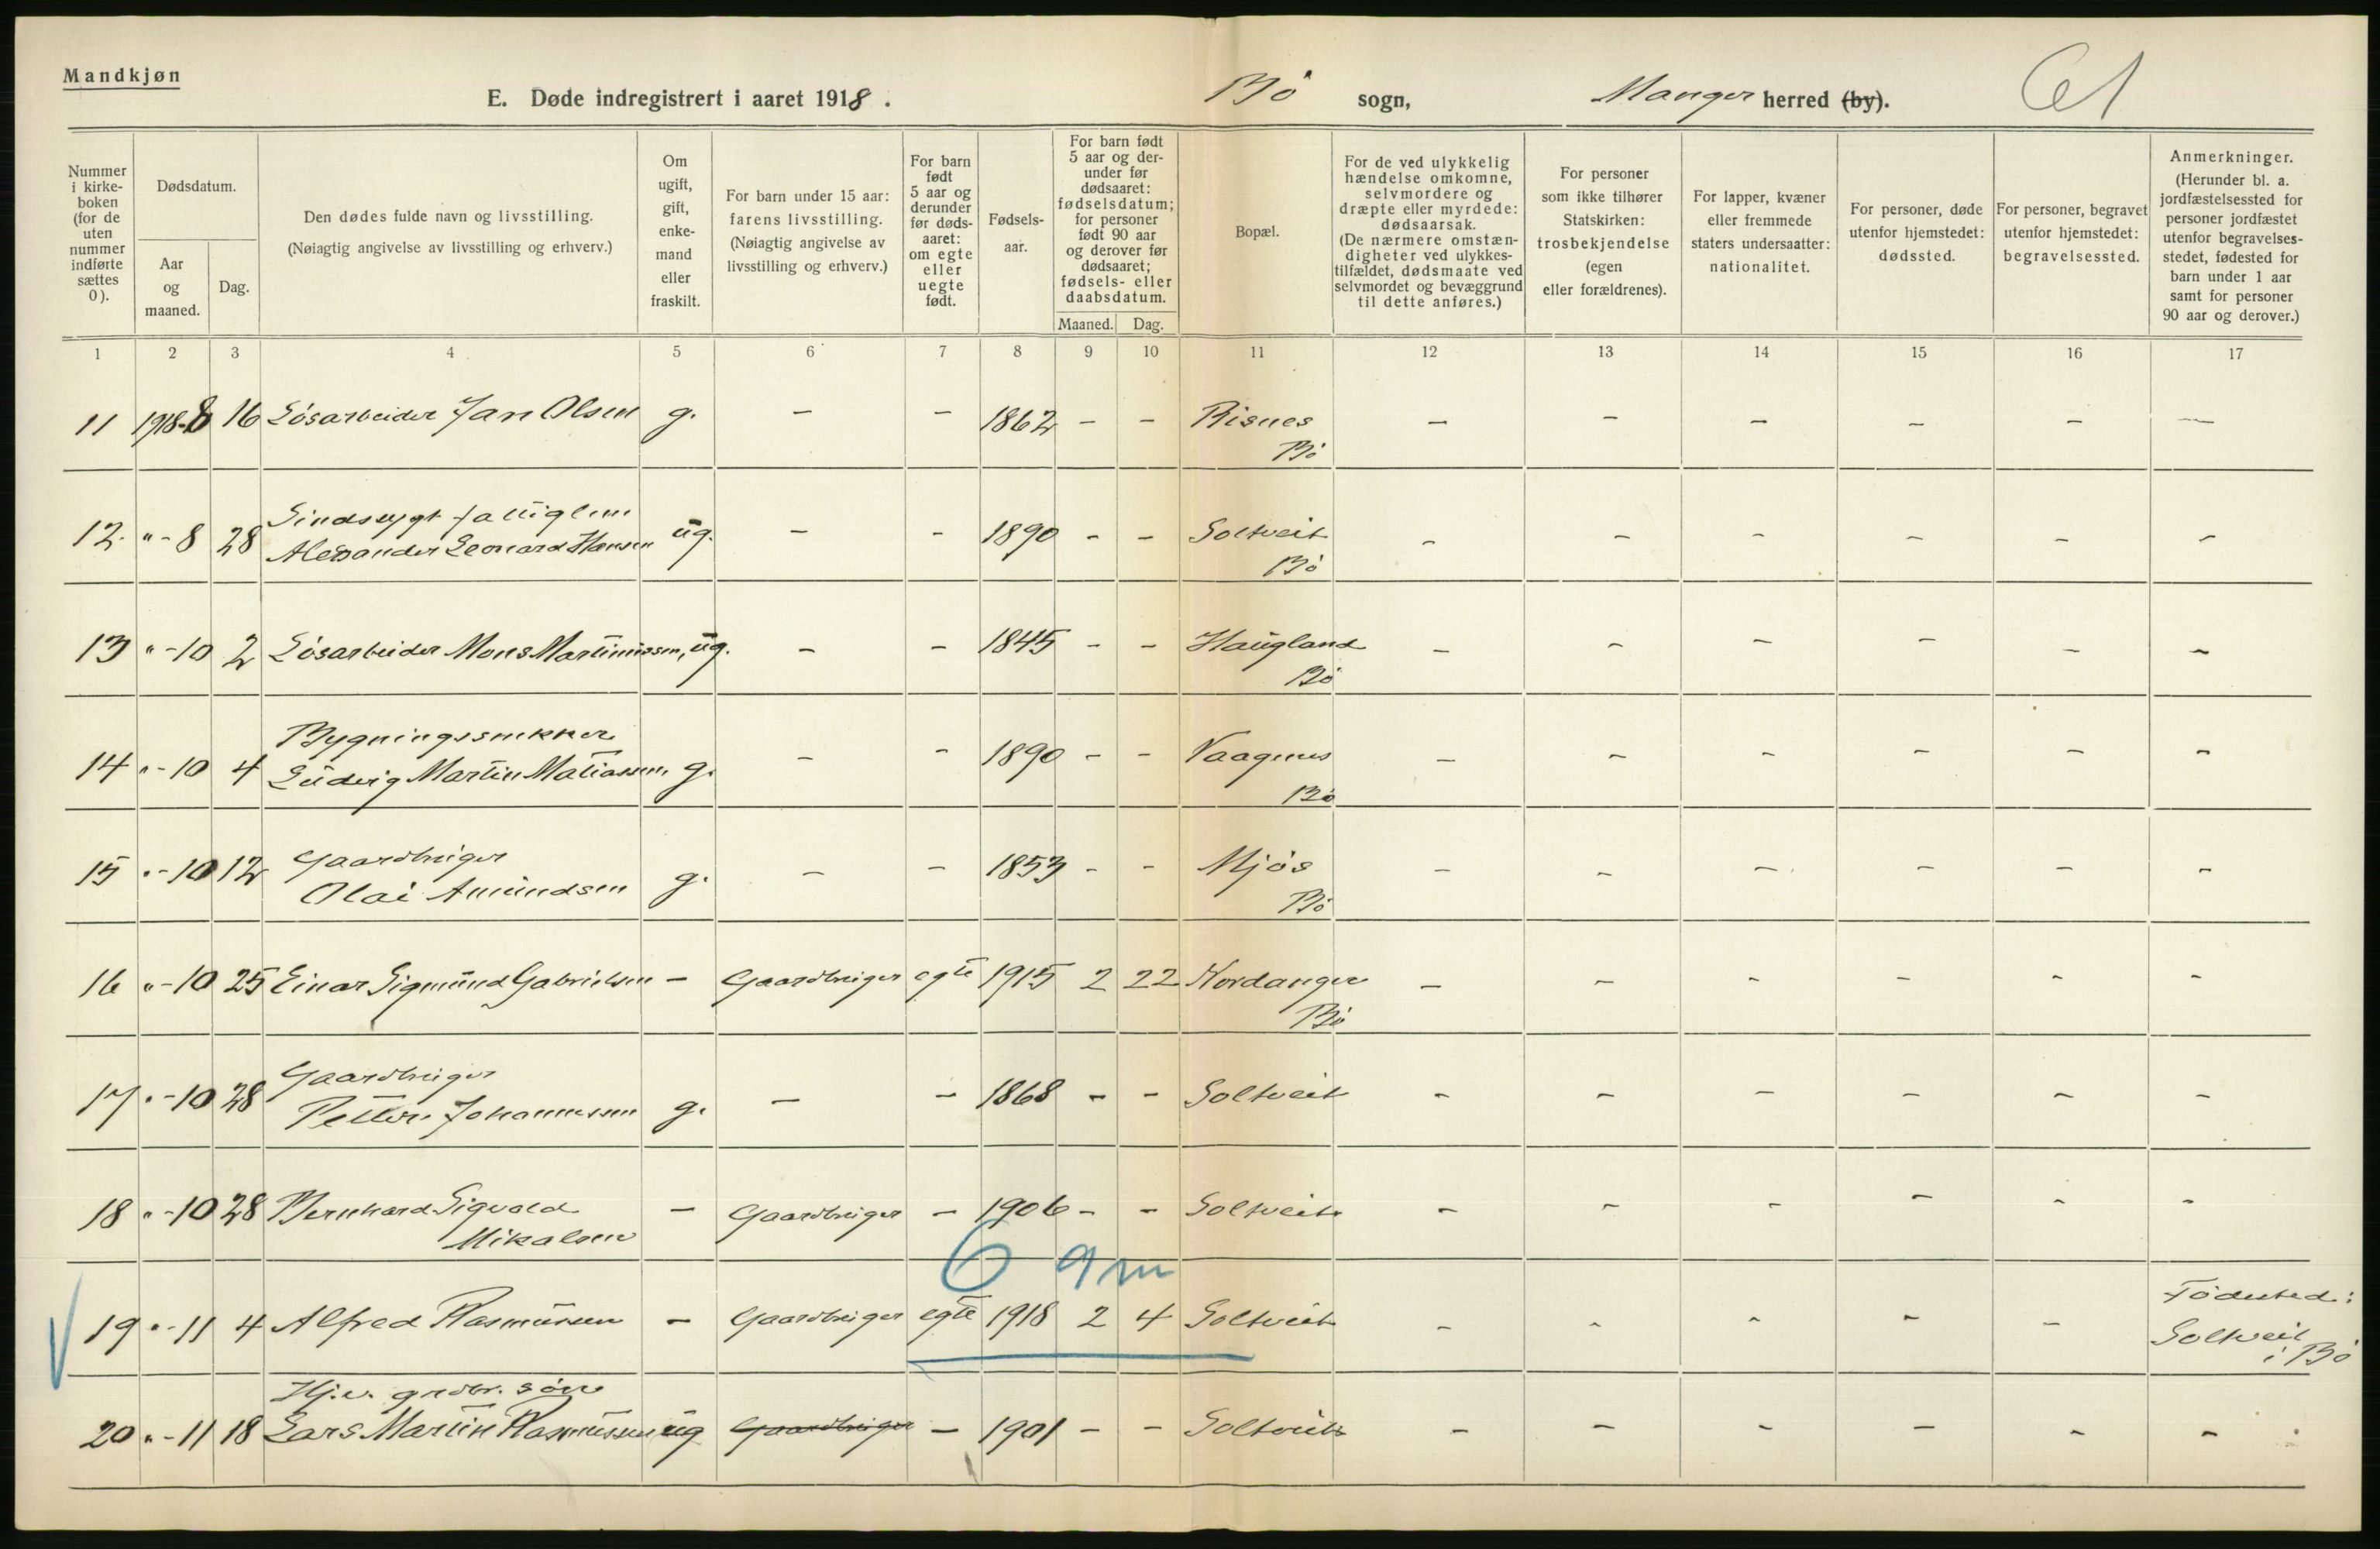 Mandkjøn
E. Døde indregistrert i aaret 1918. Bø sogn, Manger herred (by).
Nummer i kirkeboken (for de uten nummer indførte sættes 0).
Dødsdatum.
Aar og maaned.
Dag.
Den dødes fulde navn og livsstilling.
(Nøiagtig angivelse av livsstilling og erhverv.)
Om ugift, gift, enkemand eller fraskilt.
For barn under 15 aar: farens livsstilling.
(Nøiagtig angivelse av livsstilling og erhverv.)
For barn født 5 aar og derunder før dødsaaret: om egte eller uegte født.
Fødselsaar.
For barn født 5 aar og derunder før dødsaaret: fødselsdatum; for personer født 90 aar og derover før dødsaaret; fødsels- eller daabsdatum.
Maaned. Dag.
Bopæl.
For de ved ulykkelig hændelse omkomne, selvmordere og dræpte eller myrdede: dødsaarsak.
(De nærmere omstændigheter ved ulykkestilfældet, dødsmaate ved selvmordet og bevæggrund til dette anføres.)
For personer som ikke tilhører Statskirken: trosbekjendelse (egen eller forældrenes).
For lapper, kvæner eller fremmede staters undersaatter: nationalitet.
For personer, døde utenfor hjemstedet: dødssted.
For personer, begravet utenfor hjemstedet: begravelsessted.
Anmerkninger.
(Herunder bl. a. jordfæstelsessted for personer jordfæstet utenfor begravelsesstedet, fødested for barn under 1 aar samt for personer 90 aar og derover.)
1 2 3 4 5 6 7 8 9 10 11 12 13 14 15 16 17
11 1918-8 16 Løsarbeider Jan Olsen g. – – 1862 – – Risnes – – – – – –
Bø
Sindssygt fattiglem
12. "-8 28 Alexander Leonard Hansen ug. – – 1890 – – Soltveit – – – – – –
Bø
13 "-10 2 Løsarbeider Mons Martinussen, ug. – – 1845 – – Haugland – – – – – –
Bø
Bygningssnekker
14 "-10 4 Ludvig Martin Matiassen, g. – – 1890 – – Vaagenes – – – – – –
Bø
Gaardbruger
15 "-10 12 Olai Amundsen g. – – 1853 – – Mjøs – – – – – –
Bø
16 "-10 25 Einar Sigmund Gabrielsen – Gaardbruger egte 1915 2 22 Nordanger – – – – – –
Bø
Gaardbruger
17 "-10 28 Petter Johannessen g. – – 1868 – – Soltveit – – – – – –
18 "-10 28 Bernhard Sigvald – Gaardbruger – 1906 – – Soltveit – – – – – –
Mikalsen
6 9 m
19 "-11 4 Alfred Rasmussen – Gaardbruger egte 1918 2 4 Soltveit – – – – – Fødested:
Soltveit
i Bø
Hj.v. grdbr. søn
20 "-11 18 Lars Martin Rasmussen ug Gaardbruger – 1901 – – Soltveit – – – – – –